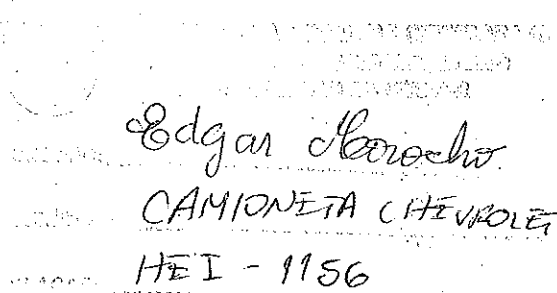 Edgar Morocho.
CAMIONETA CHEVROLET
HEI - 1156